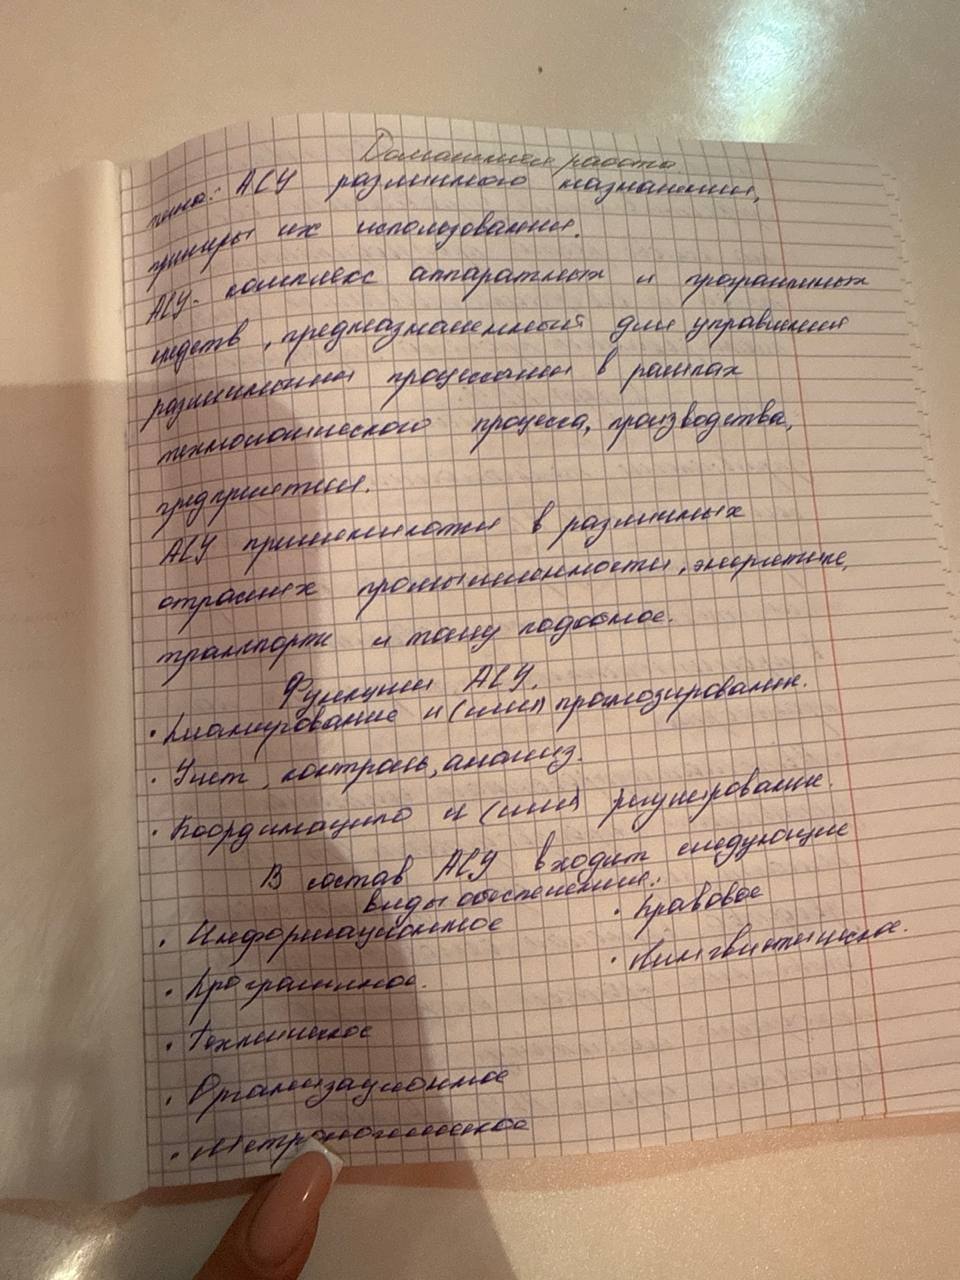 Домашняя работа
тема: АСУ различного назначения,
примеры их использования.
АСУ- комплекс аппаратных и программных
средств, предназначенный для управления
различными процессами в рамках
технологического процесса, производства,
предприятия.
АСУ применяются в различных
отраслях промышленности, энергетике,
транспорте и тому подобное.
Функции АСУ.
• Планирование и (или) прогнозирование.
• Учет, контроль, анализ.
• Координацию и (или) регулирование.
В состав АСУ входит следующие
виды обеспечения:
• Информационное
• Программное.
• Техническое
• Организационное
• Метрологическое
• Правовое
• Лингвистическое.